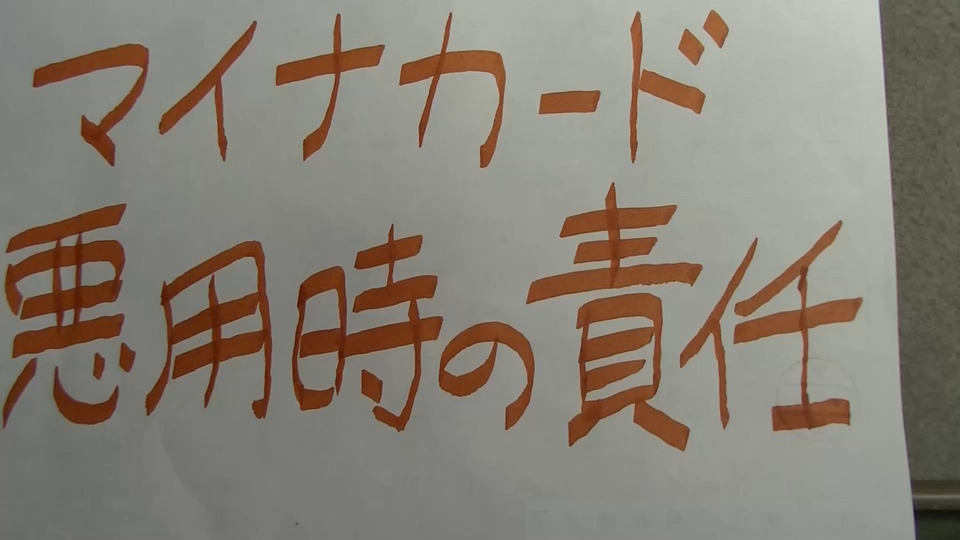 マイナカード
悪用時の責任